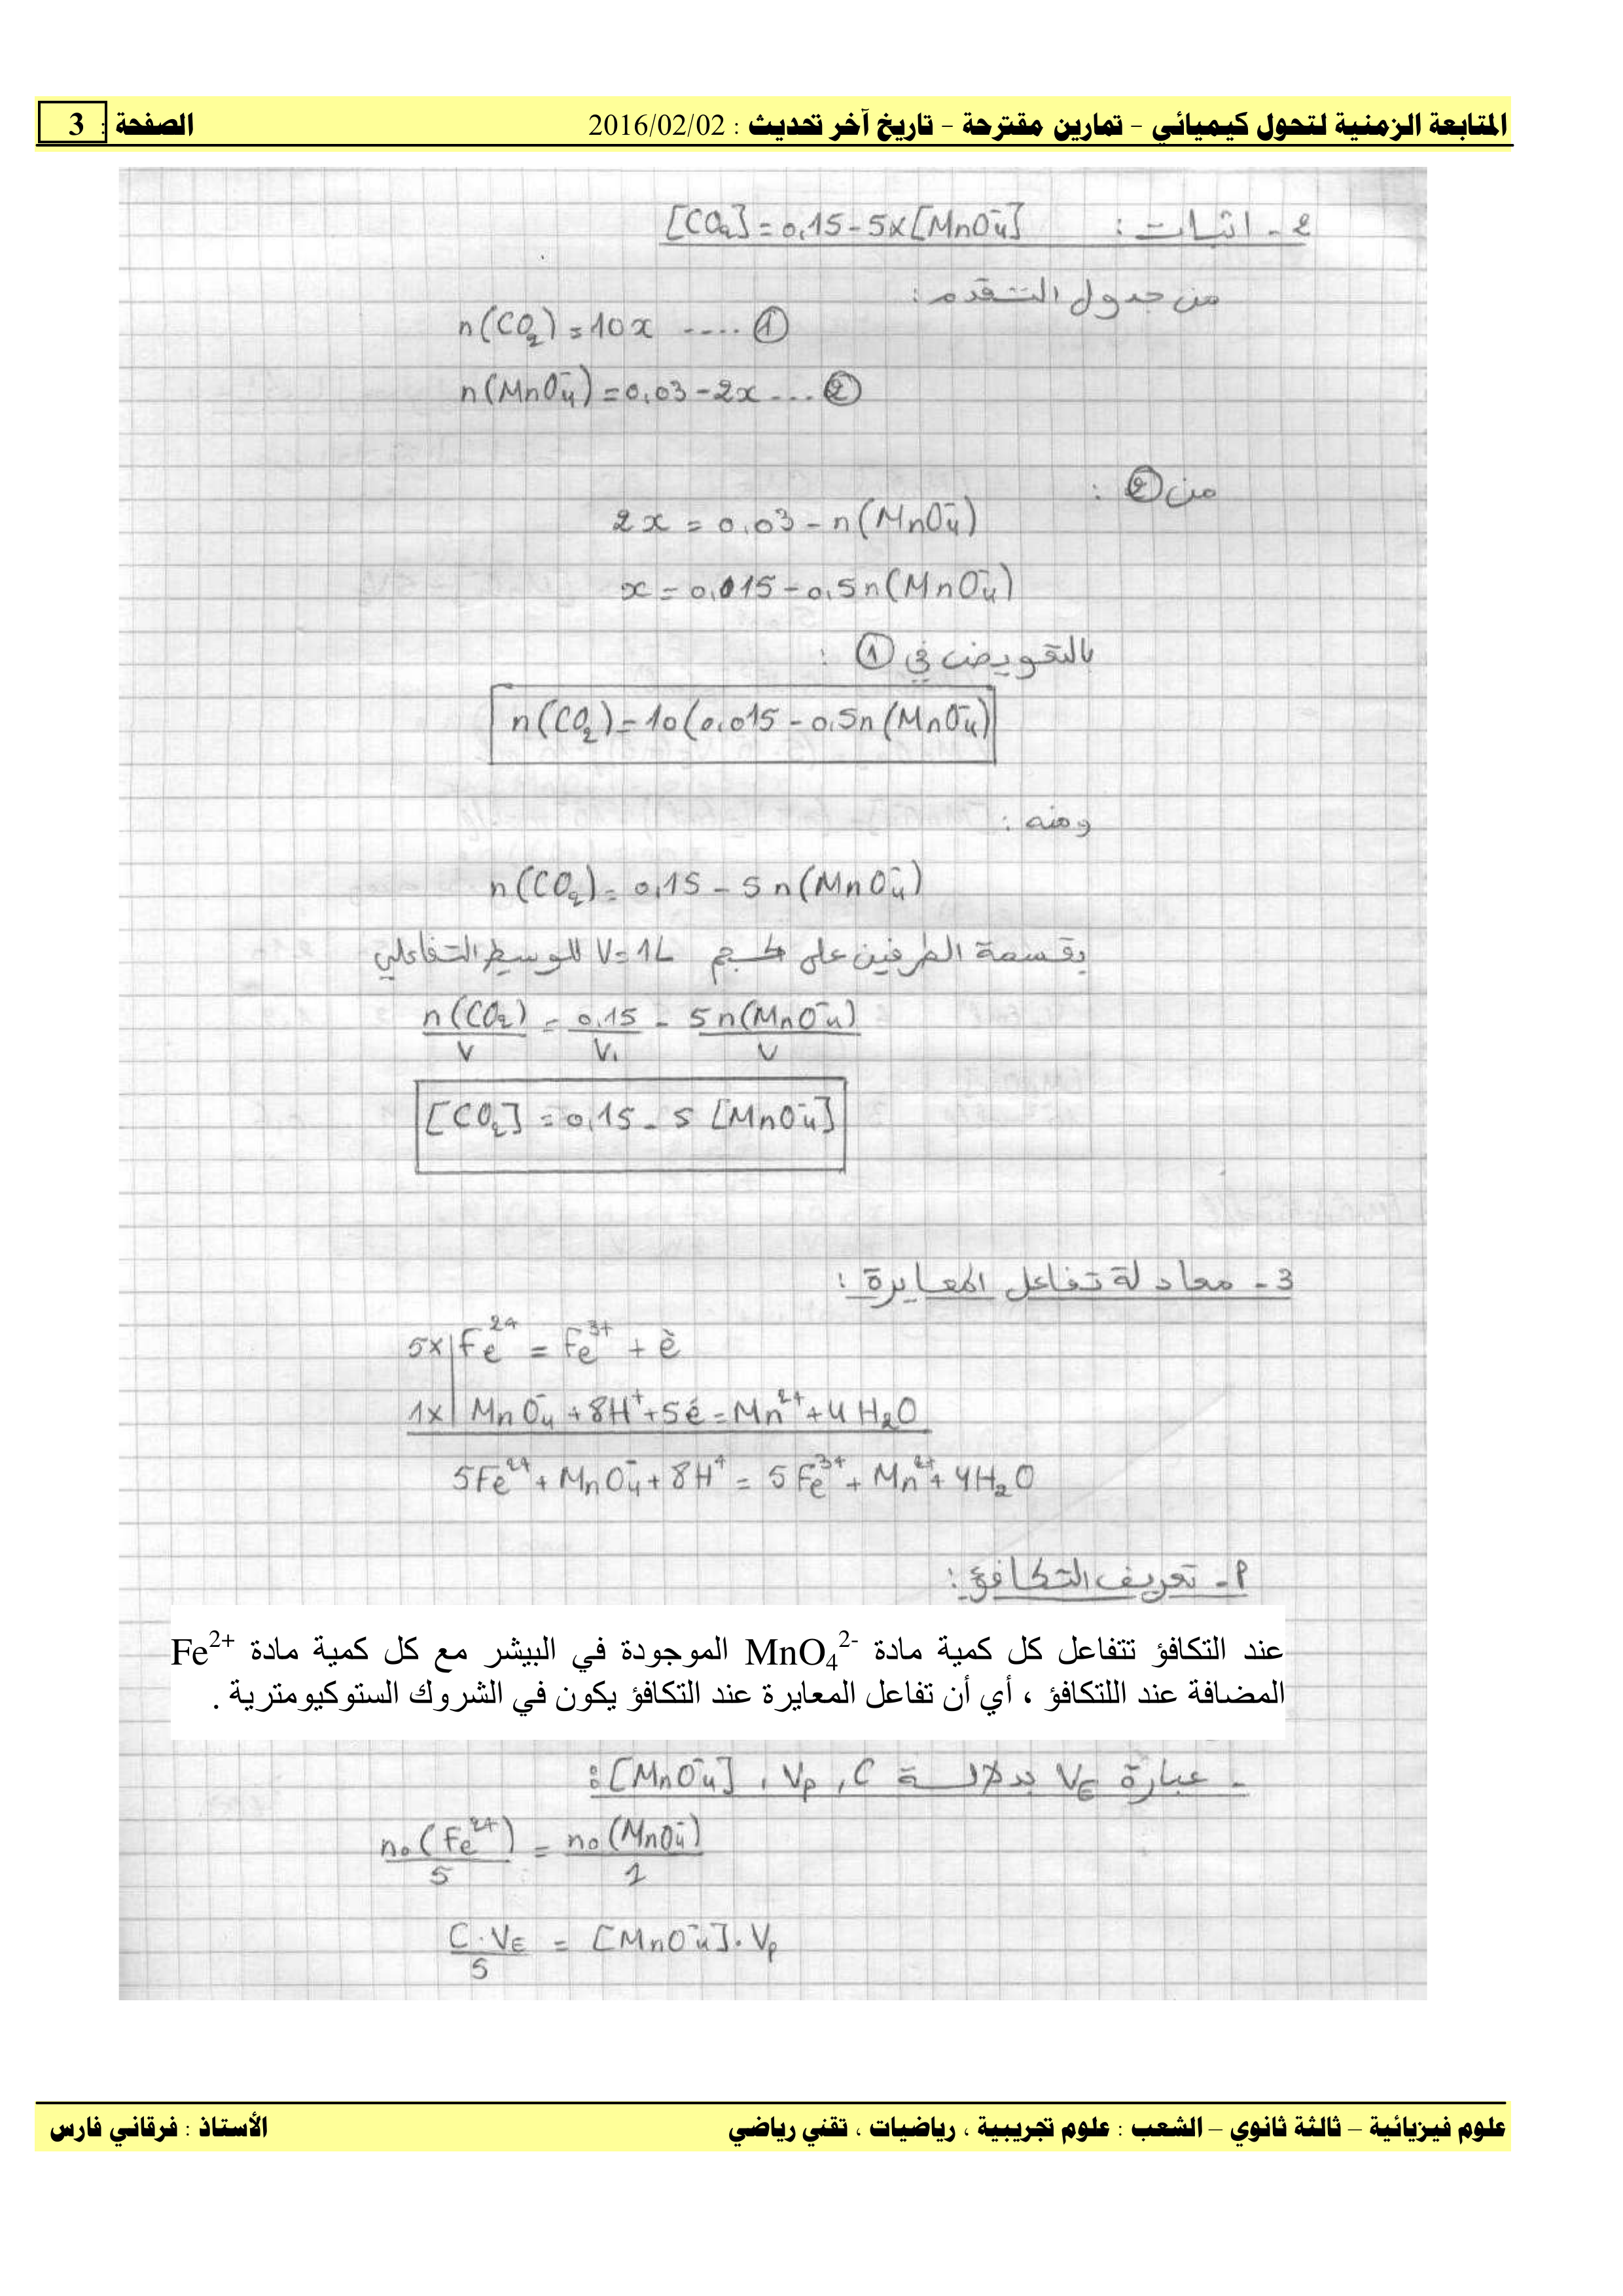 المتابعة الزمنية لتحول كيميائي – تمارين مقترحة – تاريخ آخر تحديث : 2016/02/02 الصفحة : 3
2 - اثبات : [CO₂] = 0,15 - 5x[MnO₄⁻]
من جدول التقدم :
n(CO₂) = 10x ---- ①
n(MnO₄⁻) = 0,03 - 2x ... ②
من ② :
2x = 0,03 - n(MnO₄⁻)
x = 0,015 - 0,5n(MnO₄⁻)
بالتعويض في ① :
n(CO₂) = 10(0,015 - 0,5n(MnO₄⁻)
ومنه :
n(CO₂) = 0,15 - 5n(MnO₄⁻)
بقسمة الطرفين على حجم V=1L للوسط التفاعلي
n(CO₂)/V = 0,15/V - 5n(MnO₄⁻)/V
[CO₂] = 0,15 - 5 [MnO₄⁻]
3 - معادلة تفاعل المعايرة :
5x | Fe²⁺ = Fe³⁺ + é
1x | MnO₄⁻ + 8H⁺ + 5é = Mn²⁺ + 4H₂O
5Fe²⁺ + MnO₄⁻ + 8H⁺ = 5Fe³⁺ + Mn²⁺ + 4H₂O
أ - تعريف التكافؤ :
عند التكافؤ تتفاعل كل كمية مادة MnO₄²⁻ الموجودة في البيشر مع كل كمية مادة Fe²⁺
المضافة عند اللتكافؤ ، أي أن تفاعل المعايرة عند التكافؤ يكون في الشروك الستوكيومترية .
- عبارة V_E بدلالة C , V_P , [MnO₄⁻] :
n₀(Fe²⁺)/5 = n₀(MnO₄⁻)/1
C.V_E/5 = [MnO₄⁻].V_P
علوم فيزيائية – ثالثة ثانوي – الشعب : علوم تجريبية ، رياضيات ، تقني رياضي الأستاذ : فرقاني فارس